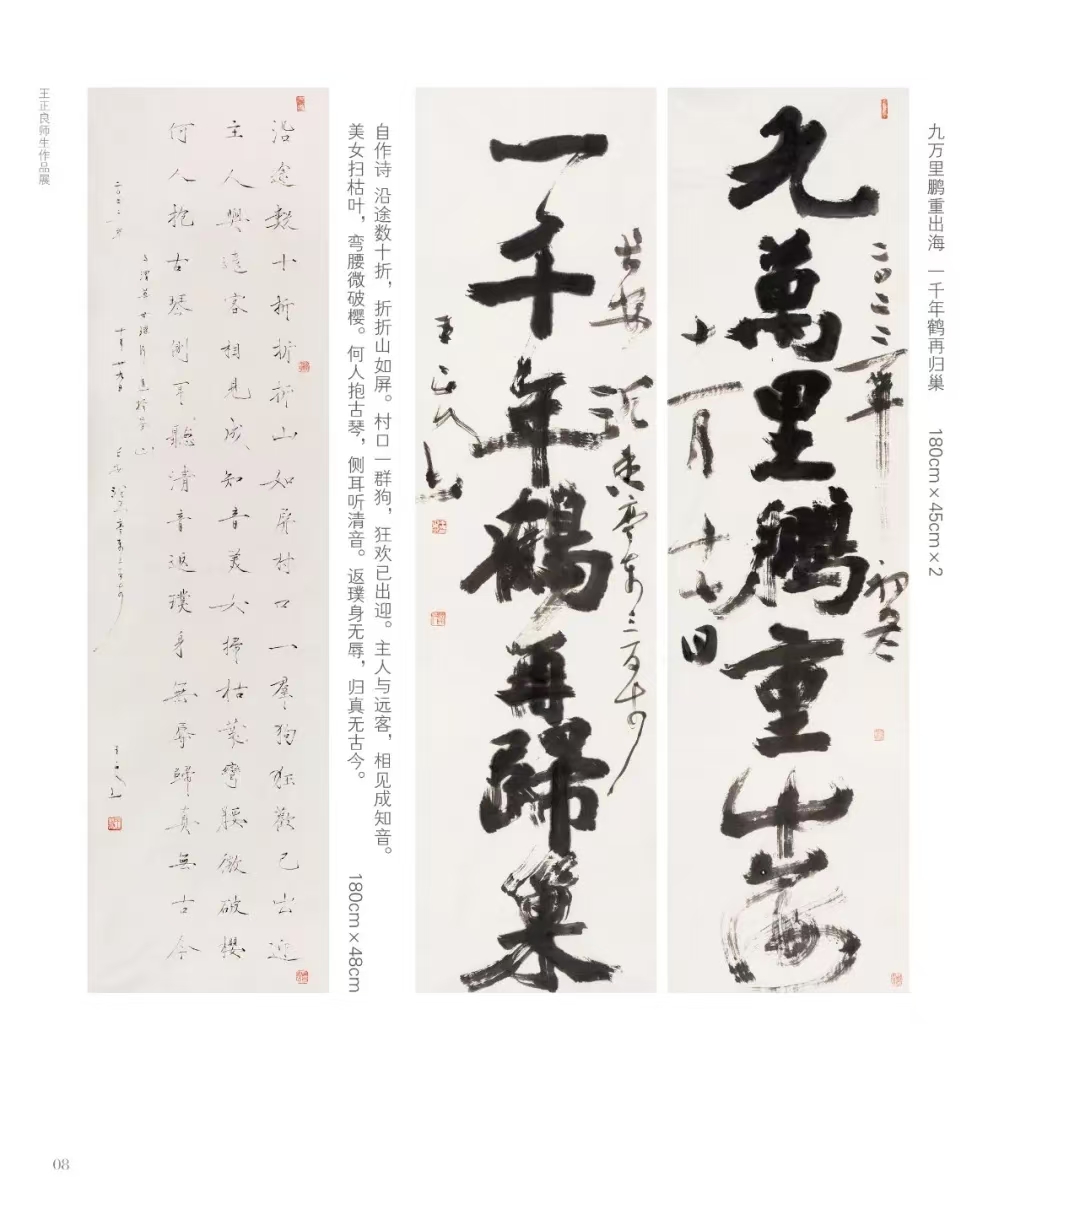 九万里鹏重出海 一千年鹤再归巢 180cm×45cm×2
九萬里鵬重出海
二〇二二年初冬
十一月十七日
一千年鶴再歸巢
自作诗 沿途数十折，折折山如屏。村口一群狗，狂欢已出迎。主人与远客，相见成知音。
美女扫枯叶，弯腰微破樱。何人抱古琴，侧耳听清音。返璞身无辱，归真无古今。 180cm×48cm
沿途数十折折折山如屏村口一羣狗狂歡已出迎
主人與遠客相見成知音美女掃枯葉彎腰微破櫻
何人抱古琴側耳聽清音返璞身無辱歸真無古今
王正良师生作品展
08